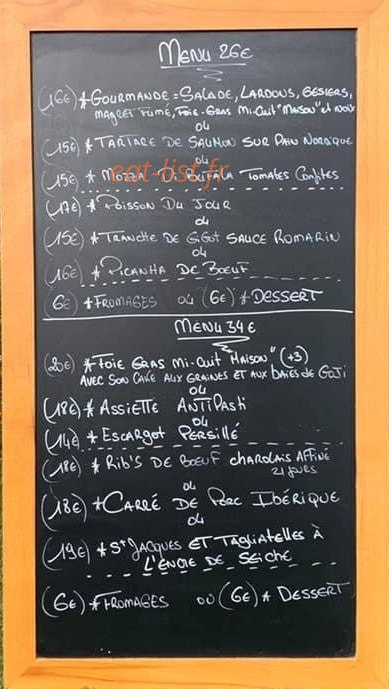 MENU 26€
(16€) * GOURMANDE = SALADE, LARDONS, GESIERS,
MAGRET FUMÉ, FOIE-GRAS MI-CUIT "MAISON" et NOIX
OU
(15€) * TARTARE DE SAUMON SUR PAIN NORDIQUE
OU
(15€) * MOZZA DI BUFALA TOMATES CONFITES
eat-list.fr
(17€) * POISSON DU JOUR
OU
(15€) * TRANCHE DE GIGOT SAUCE ROMARIN
OU
(16€) * PICANHA DE BŒUF
6€ * FROMAGES OU (6€) * DESSERT
MENU 34€
(20€) * FOIE GRAS MI-CUIT "MAISON" (+3)
AVEC SON CAKE AUX GRAINES ET AUX BAIES DE GOJI
OU
(18€) * ASSIETTE ANTIPASTI
OU
(14€) * ESCARGOT PERSILLÉ
(18€) * RIB'S DE BŒUF CHAROLAIS AFFINÉ
21 JOURS
OU
(18€) * CARRÉ DE PORC IBÉRIQUE
OU
(19€) * ST JACQUES ET TAGLIATELLES À
L'ENCRE DE SEICHE
(6€) * FROMAGES OÙ (6€) * DESSERT